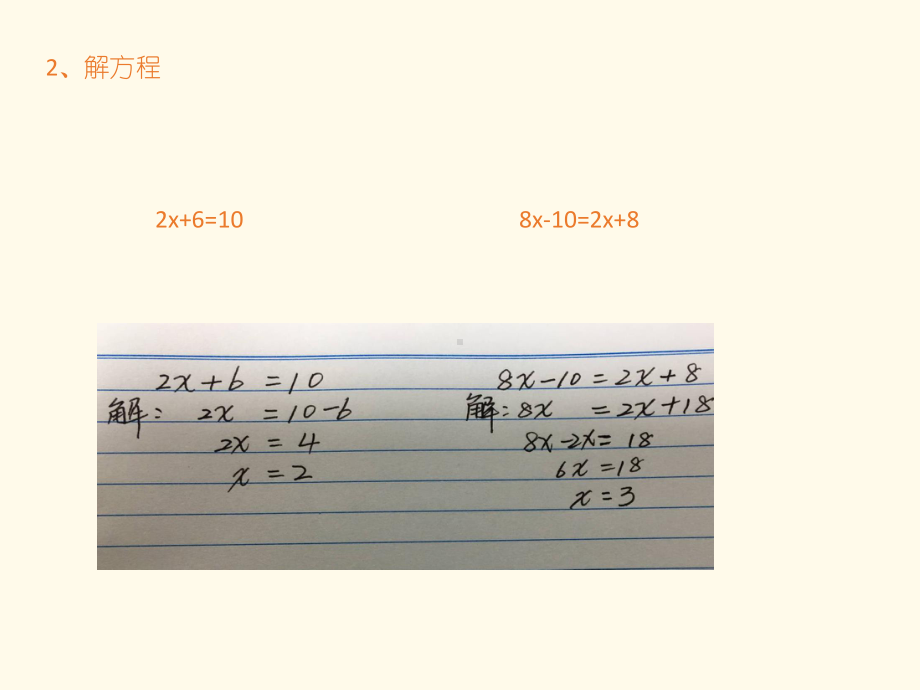 2、解方程
2x+6=10
8x-10=2x+8
2x+6=10
解: 2x=10-6
2x=4
x=2
8x-10=2x+8
解: 8x=2x+18
8x-2x=18
6x=18
x=3